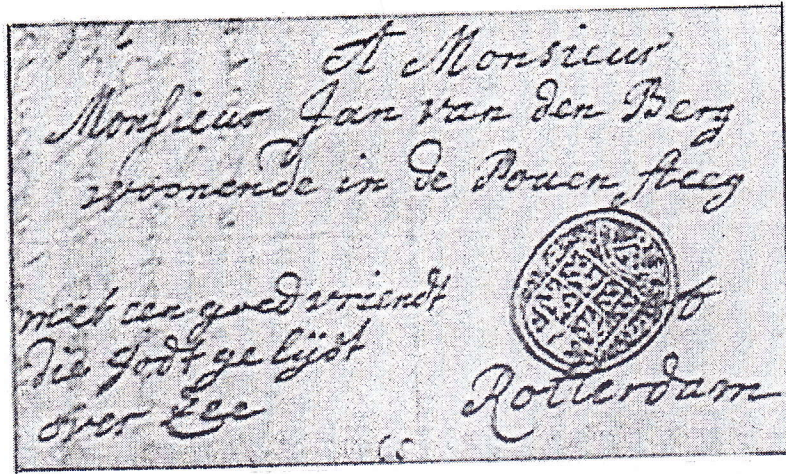 A Monsieur
Monsieur Jan van den Berg
woonende in de Pouen steeg
met een goed vriendt
die godt gelijdt
over Zee
Rotterdam